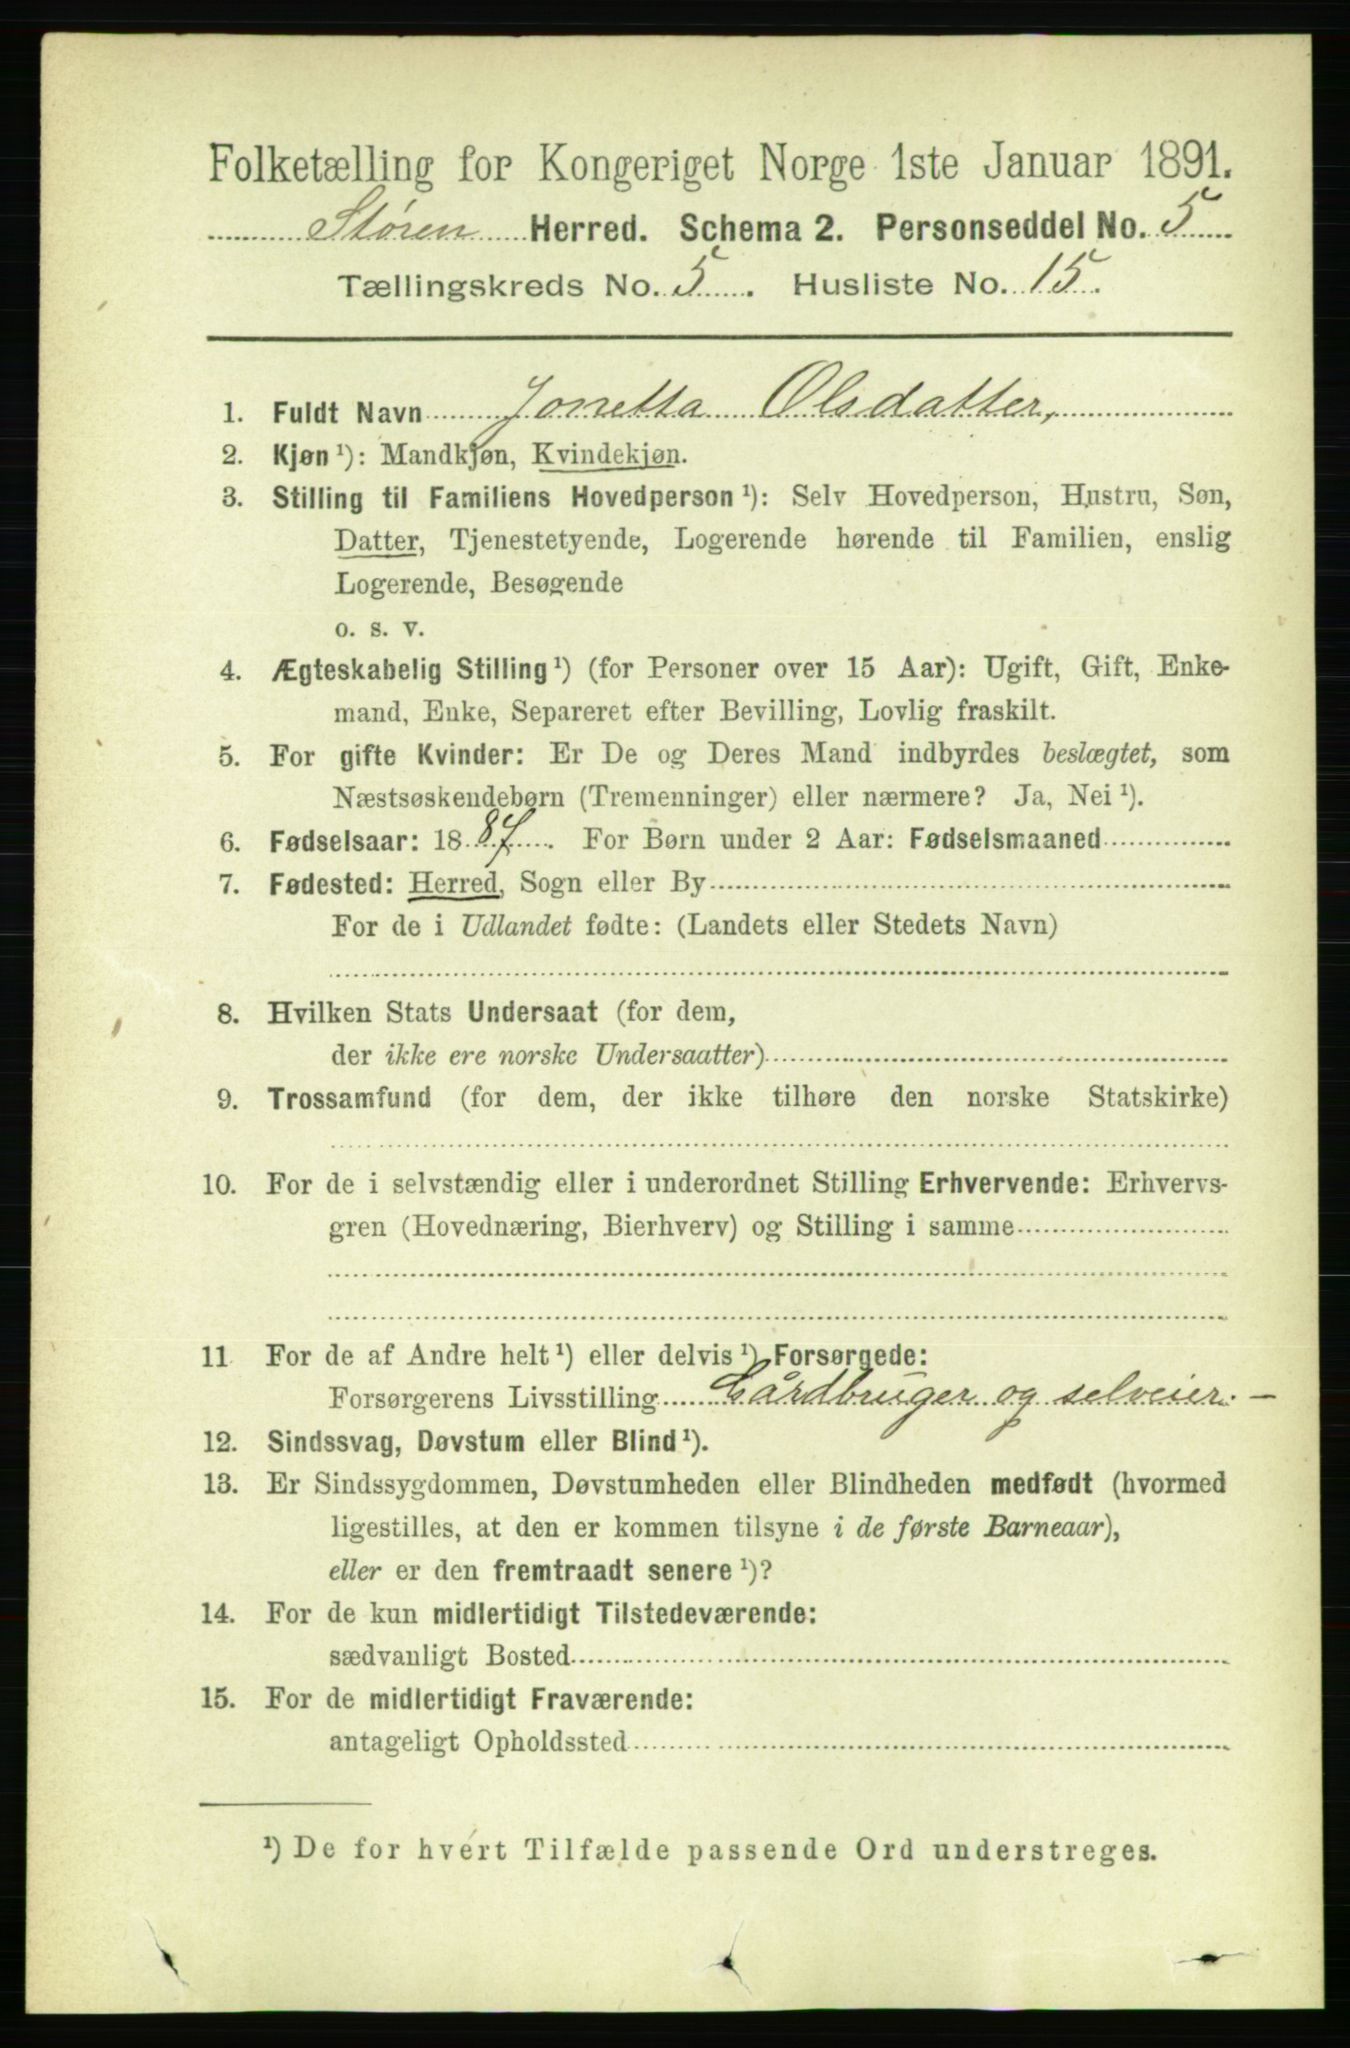 Folketælling for Kongeriget Norge 1ste Januar 1891.
Støren Herred. Schema 2. Personseddel No. 5
Tællingskreds No. 5. Husliste No. 15.
1. Fuldt Navn Jonetta Olsdatter,
2. Kjøn ¹): Mandkjøn, Kvindekjøn.
3. Stilling til Familiens Hovedperson ¹): Selv Hovedperson, Hustru, Søn,
Datter, Tjenestetyende, Logerende hørende til Familien, enslig
Logerende, Besøgende
o. s. v.
4. Ægteskabelig Stilling ¹) (for Personer over 15 Aar): Ugift, Gift, Enke-
mand, Enke, Separeret efter Bevilling, Lovlig fraskilt.
5. For gifte Kvinder: Er De og Deres Mand indbyrdes beslægtet, som
Næstsøskendebørn (Tremenninger) eller nærmere? Ja, Nei ¹).
6. Fødselsaar: 1887. For Børn under 2 Aar: Fødselsmaaned
7. Fødested: Herred, Sogn eller By
For de i Udlandet fødte: (Landets eller Stedets Navn)
8. Hvilken Stats Undersaat (for dem,
der ikke ere norske Undersaatter)
9. Trossamfund (for dem, der ikke tilhøre den norske Statskirke)
10. For de i selvstændig eller i underordnet Stilling Erhvervende: Erhvervs-
gren (Hovednæring, Bierhverv) og Stilling i samme
11 For de af Andre helt ¹) eller delvis ¹) Forsørgede:
Forsørgerens Livsstilling Gårdbruger og selveier. —
12. Sindssvag, Døvstum eller Blind ¹).
13. Er Sindssygdommen, Døvstumheden eller Blindheden medfødt (hvormed
ligestilles, at den er kommen tilsyne i de første Barneaar),
eller er den fremtraadt senere ¹)?
14. For de kun midlertidigt Tilstedeværende:
sædvanligt Bosted
15. For de midlertidigt Fraværende:
antageligt Opholdssted
¹) De for hvert Tilfælde passende Ord understreges.